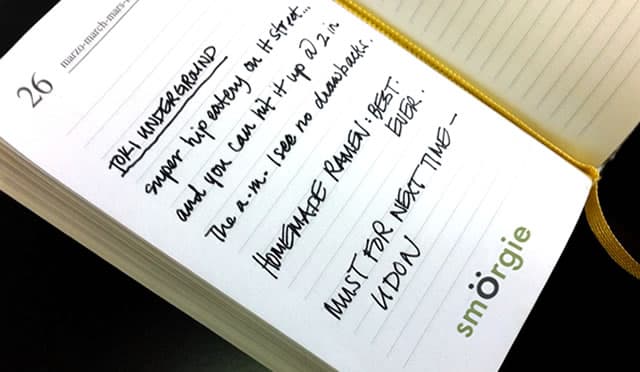 26
marzo-march-mars-
TOKI UNDERGROUND
super hip eatery on H street...
and you can hit it up @ 2 in
the a.m. I see no drawbacks.
HOMEMADE RAMEN: BEST.
EVER.
MUST FOR NEXT TIME -
UDON
smörgie